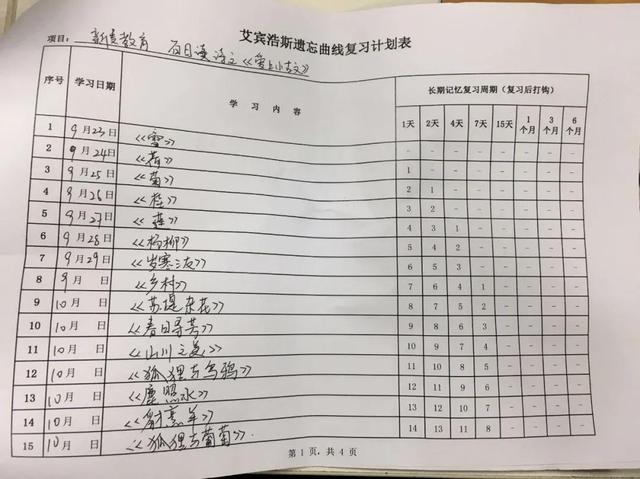 艾宾浩斯遗忘曲线复习计划表
项目: 新东教育 百日读语文《爱上小古文》
序号 学习日期 学 习 内 容 长期记忆复习周期(复习后打钩)
1天 2天 4天 7天 15天 1个月 3个月 6个月
1 9月23日 《雪》 - - - - - - - -
2 9月24日 《荷》 - - - - - - - -
3 9月25日 《菊》 1 - - - - - - -
4 9月26日 《桂》 2 1 - - - - - -
5 9月27日 《莲》 3 2 - - - - - -
6 9月28日 《杨柳》 4 3 1 - - - - -
7 9月29日 《岁寒三友》 5 4 2 - - - - -
8 9月 日 《乡村》 6 5 3 - - - - -
9 10月 日 《苏堤杂花》 7 6 4 1 - - - -
10 10月 日 《春日寻芳》 8 7 5 2 - - - -
11 10月 日 《山川之美》 9 8 6 3 - - - -
12 10月 日 《狐狸与乌鸦》 10 9 7 4 - - - -
13 10月 日 《鹿照水》 11 10 8 5 - - - -
14 10月 日 《豺烹羊》 12 11 9 6 - - - -
15 10月 日 《狐狸与葡萄》 13 12 10 7 - - - -
14 13 11 8 - - - -
第 1 页,共 4 页